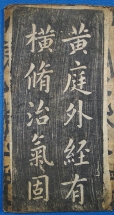 黃庭外經有
橫脩治氣固